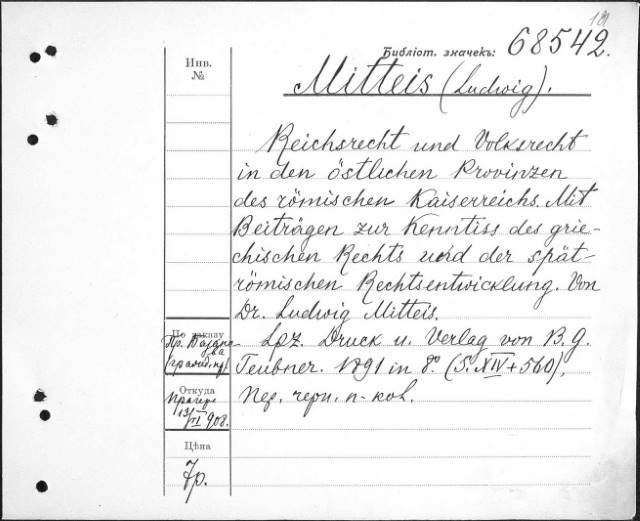 181
Библіот. значекъ: 68542.
Инв.
№
Mitteis (Ludwig).
Reichsrecht und Volksrecht
in den östlichen Provinzen
des römischen Kaiserreichs. Mit
Beiträgen zur Kenntiss des grie-
chischen Rechts und der spät-
römischen Rechtsentwicklung. Von
Dr. Ludwig Mitteis.
Lpz. Druck u. Verlag von B. G.
Teubner. 1891 in 8°. (S. XIV + 560).
Пер. черн. п-кол.
По заказу
Пр.
Откуда
13/VI 908.
Цѣна
7р.